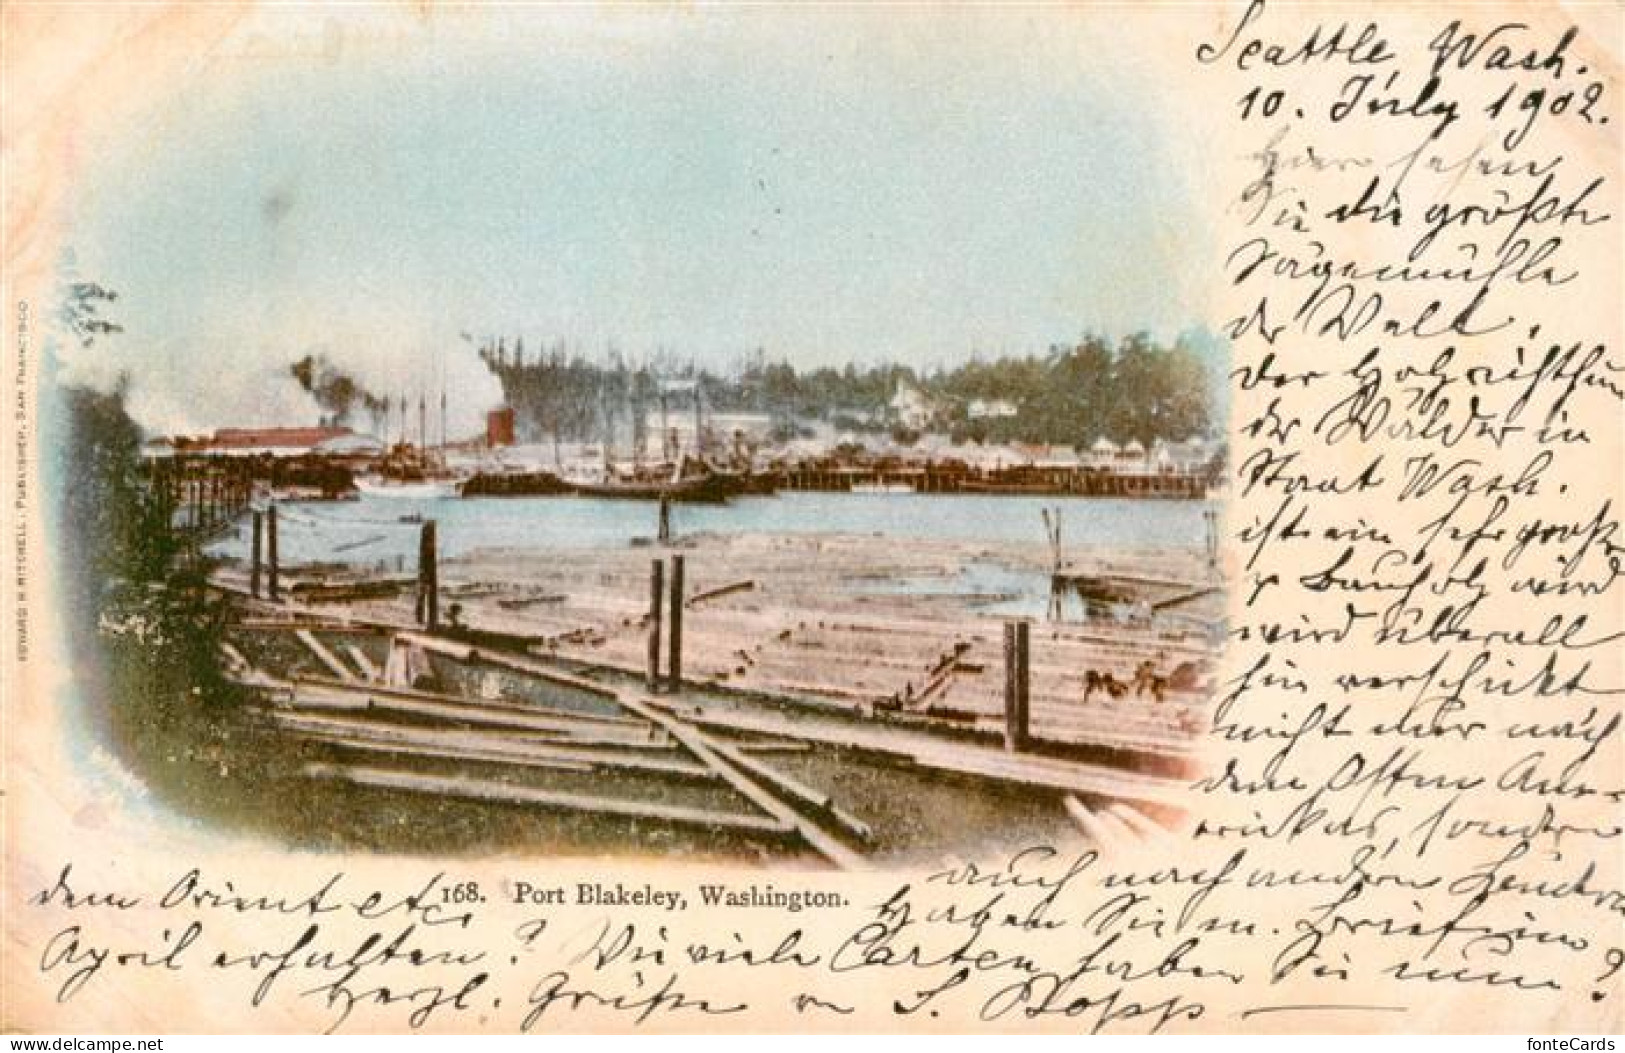 Seattle, Wash.
10. July 1902.
Hier sehen
Sie die größte
Sägemühle
der Welt.
Der Holzreichthum
der Wälder im
Staat Wash.
ist ein sehr großer
& Bauholz wird
wird überall
hin verschickt
nicht nur nach
dem Osten Ame-
rikas, sondern
auch nach andern Ländern
dem Orient etc.
168. Port Blakeley, Washington.
Haben Sie m. Brief im
April erhalten? Wie viele Carten haben Sie nun?
Herzl. Grüße v S. Bopp
EDWARD H. MITCHELL, PUBLISHER, SAN FRANCISCO
delcampe.net
fonteCards